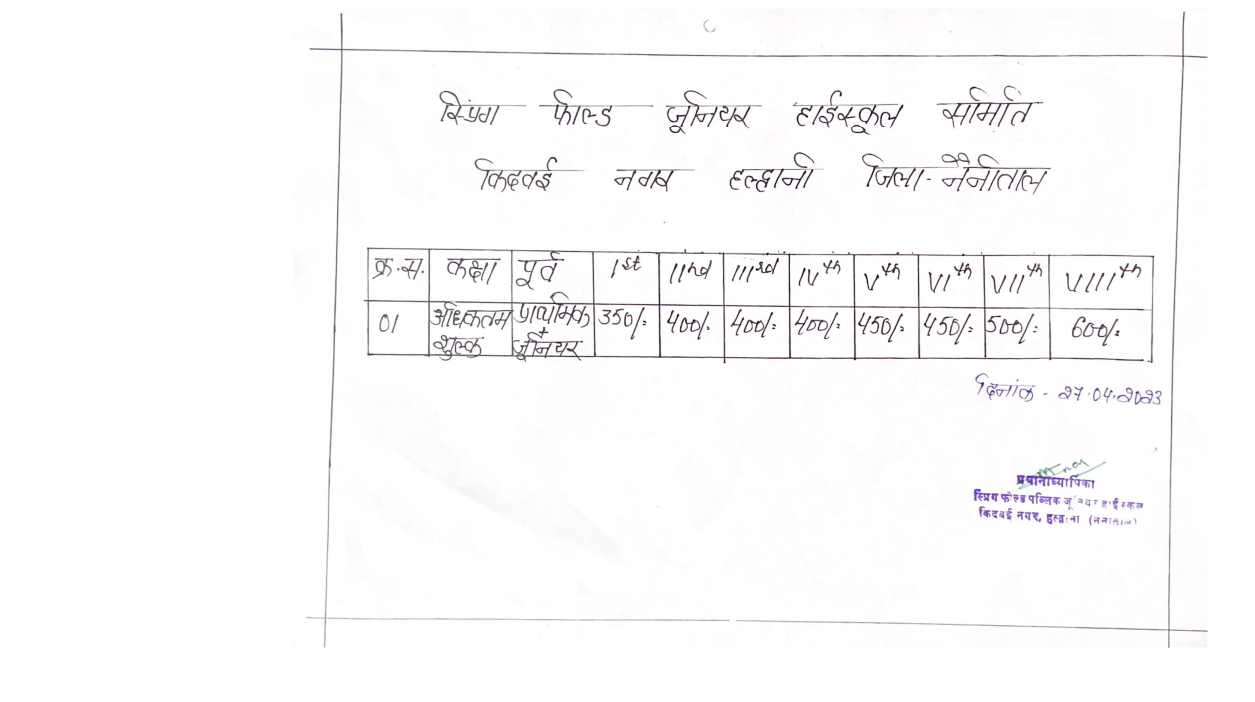 स्प्रिंग फील्ड जूनियर हाईस्कूल समिति
किदवई नगर हल्द्वानी जिला - नैनीताल
क्र.स. कक्षा पूर्व Ist IInd IIIrd IVth Vth VIth VIIth VIIIth
01 अधिकतम शुल्क प्राथमिक + जूनियर 350/- 400/- 400/- 400/- 450/- 450/- 500/- 600/-
दिनांक - 27.04.2023
प्रधानाध्यापिका
स्प्रिंग फील्ड पब्लिक जूनियर हाईस्कूल
किदवई नगर, हल्द्वानी (नैनीताल)